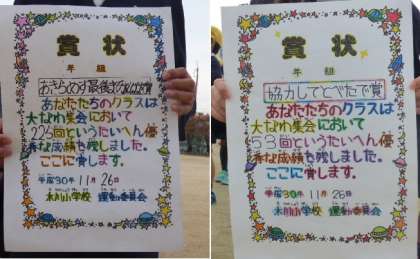 賞状
年 組
あきらめず最後までがんばったで賞
あなたたちのクラスは
大なわ集会において
225回というたいへん優
秀な成績を残しました。
ここに賞します。
平成30年 11月 26日
木川小学校 運動委員会
賞状
年 組
協力してとべたで賞
あなたたちのクラスは
大なわ集会において
53回というたいへん優
秀な成績を残しました。
ここに賞します。
平成30年 11月 26日
木川小学校 運動委員会